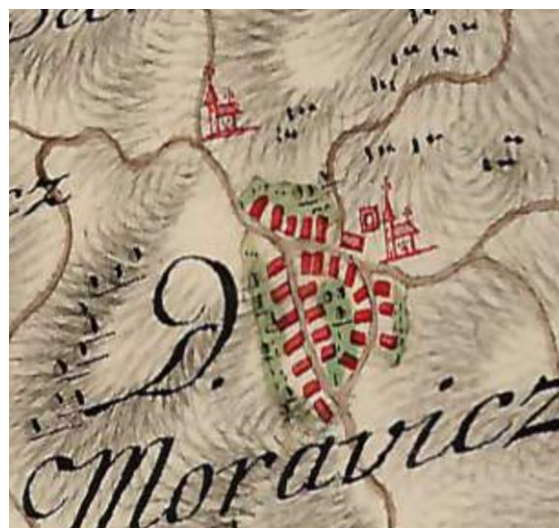 cz
D.
Moravicz